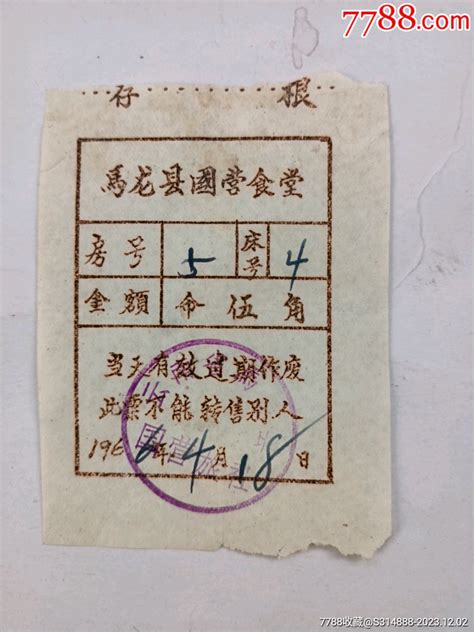 7788.com
存 根
馬龙县國营食堂
房号 5 床号 4
金额 伍角
当天有效过期作废
此票不能转售别人
196 年4月18日
国营旅社
7788收藏@S314888-2023.12.02